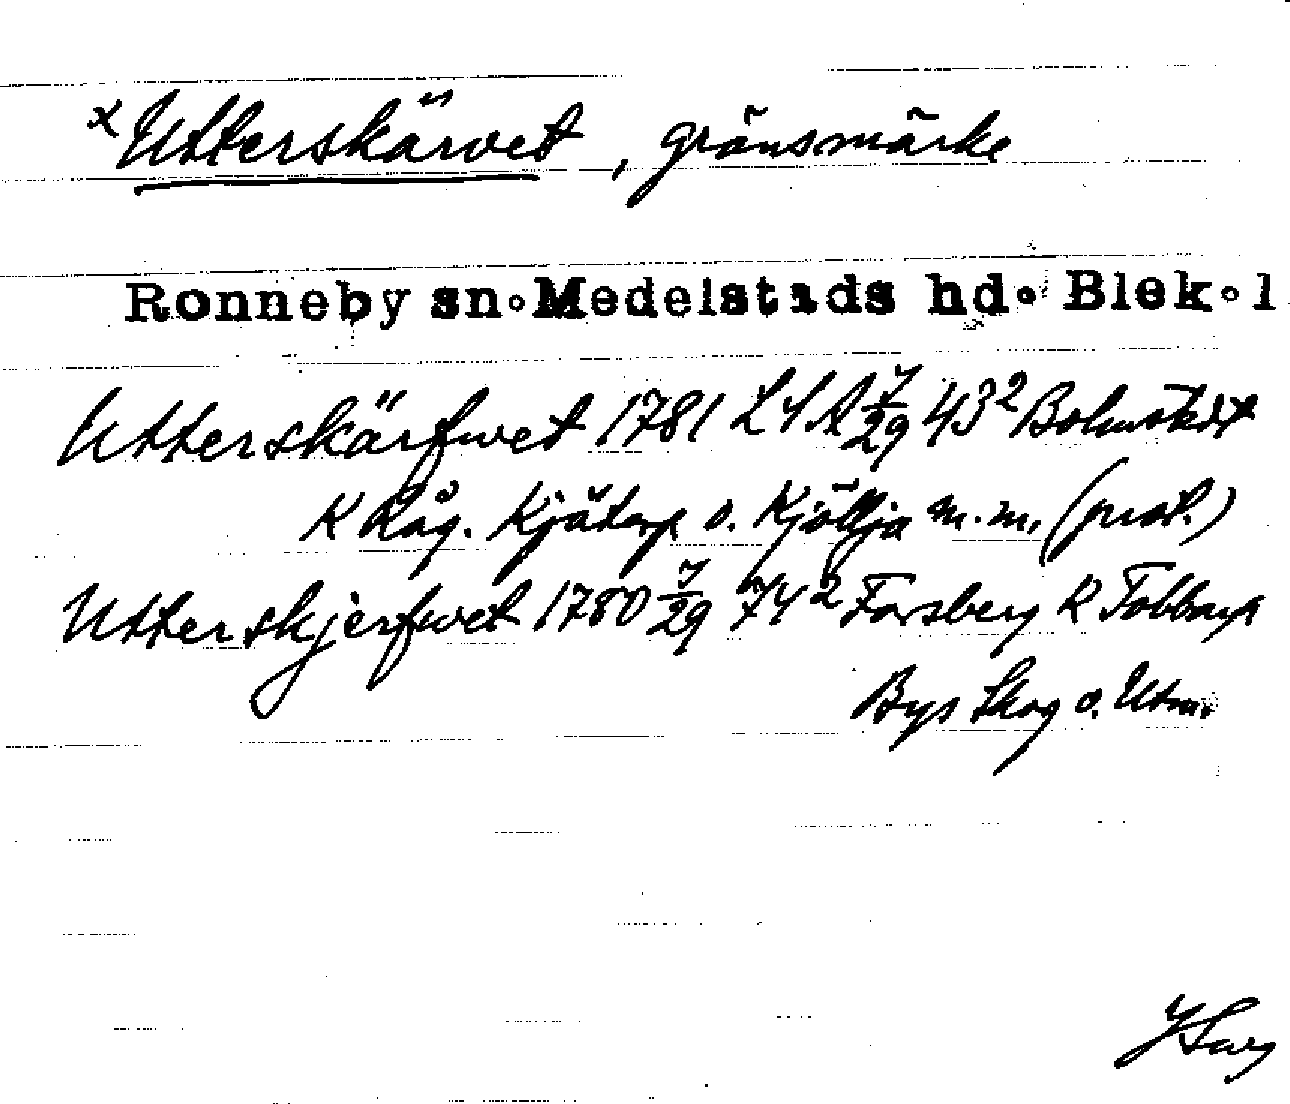 x Utterskärvet, gränsmärke
Ronneby sn. Medelstads hd. Blek. l
Utterskärfwet 1781 LSA 7/29 43² Bohnstedt
K Råg. Kjätorp o. Kjöllja m.m. (prot.)
Utterskjerfwet 1780 7/29 74² Forsberg K Tobbarp
Bys Skog o. Utm.